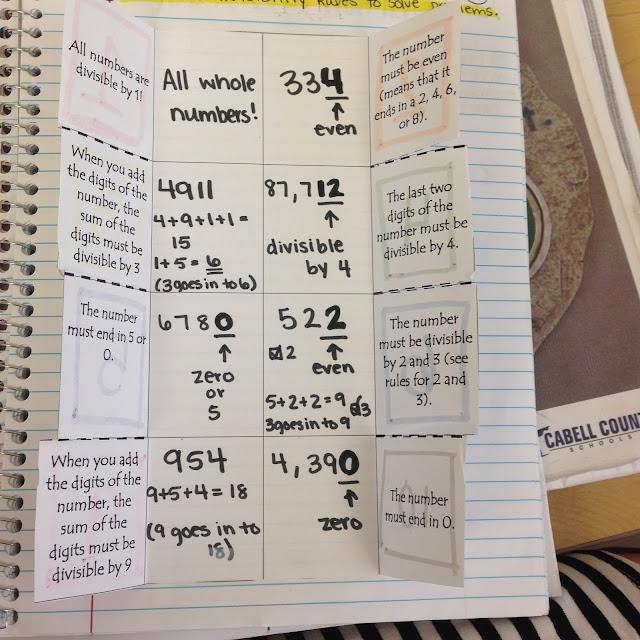 Rules to Solve
All numbers are
divisible by 1!
All whole
numbers!
334
↑
even
The number
must be even
(means that it
ends in a 2, 4, 6,
or 8).
When you add
the digits of the
number, the
sum of the
digits must be
divisible by 3
4911
4+9+1+1=
15
1+5=6
(3 goes in to 6)
87,712
↑
divisible
by 4
The last two
digits of the
number must be
divisible by 4.
The number
must end in 5 or
0.
6780
↑
zero
or
5
522
☑2 ↑
even
5+2+2=9 ☑3
3 goes in to 9
The number
must be divisible
by 2 and 3 (see
rules for 2 and
3).
When you add
the digits of the
number, the
sum of the
digits must be
divisible by 9
954
9+5+4=18
(9 goes in to
18)
4,390
↑
zero
The number
must end in 0.
CABELL COUN
SCHOOLS